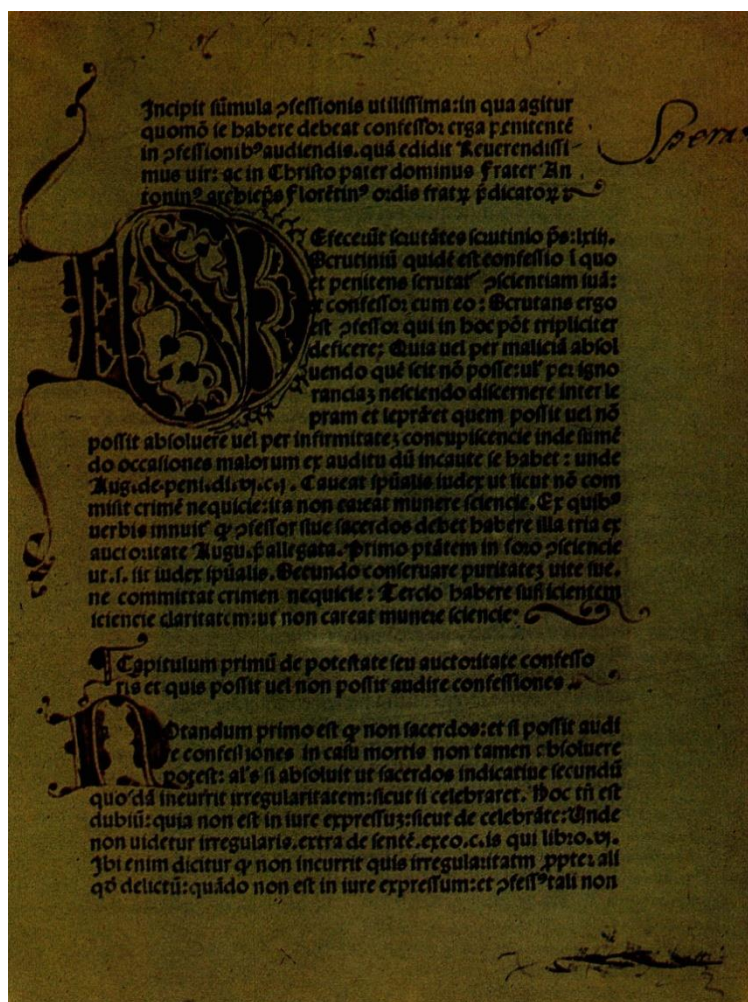 Incipit sūmula ꝯfessionis utilissima: in qua agitur
quomō se habere debeat confessor erga penitentē
in ꝯfessionibꝰ audiendis. quā edidit Reuerendissi-
mus uir: ac in Christo pater dominus Frater An
toninꝰ archiep̄s florētinꝰ ordīs fratꝝ p̄dicatoꝝ
Efecerūt scrutātes scrutinio p̄s: lxiij.
Scrutiniū quidē est confessio ī quo
et penitens scrutat᷑ ꝯscientiam suā:
et confessor cum eo: Scrutans ergo
est ꝯfessor qui in hoc pōt tripliciter
deficere; Quia uel per maliciā absol
uendo quē scit nō posse: ul᷑ per igno
ranciaꝫ nesciendo discernere inter le
pram et leprā et quem possit uel nō
possit absoluere uel per infirmitateꝫ concupiscencie inde sumē
do occasiones malorum ex auditu dū incaute se habet: unde
Aug. de. peni. di. vj. c. j. Caueat sp̄ualis iudex ut sicut nō com
misit crimē nequicie: ita non careat munere sciencie. Ex quibꝰ
uerbis innuit᷑ ꝙ ꝯfessor siue sacerdos debet habere illa tria ex
auctoritate Augu. p̄allegata. Primo ptātem in foro ꝯsciencie
ut. s. sit iudex sp̄ualis. Secundo conseruare puritateꝫ uite sue.
ne committat crimen nequicie: Tercio habere sufficientem
sciencie claritatem: ut non careat munere sciencie:
Capitulum primū de potestate seu auctoritate confesso
ris et quis possit uel non possit audire confessiones
Notandum primo est ꝙ non sacerdos: et si possit audi
re confessiones in casu mortis non tamen absoluere
potest: al᷑s si absoluit ut sacerdos indicatiue secundū
quosdā incurrit irregularitatem: sicut si celebraret. Hoc tn̄ est
dubiū: quia non est in iure expressuꝫ: sicut de celebrāte: Unde
non uidetur irregularis. extra de sentē. exco. c. is qui libro. vj.
Ibi enim dicitur ꝙ non incurrit quis irregularitatm ꝓpter ali
qō delictū: quādo non est in iure expressum: et ꝯfessꝰ tali non